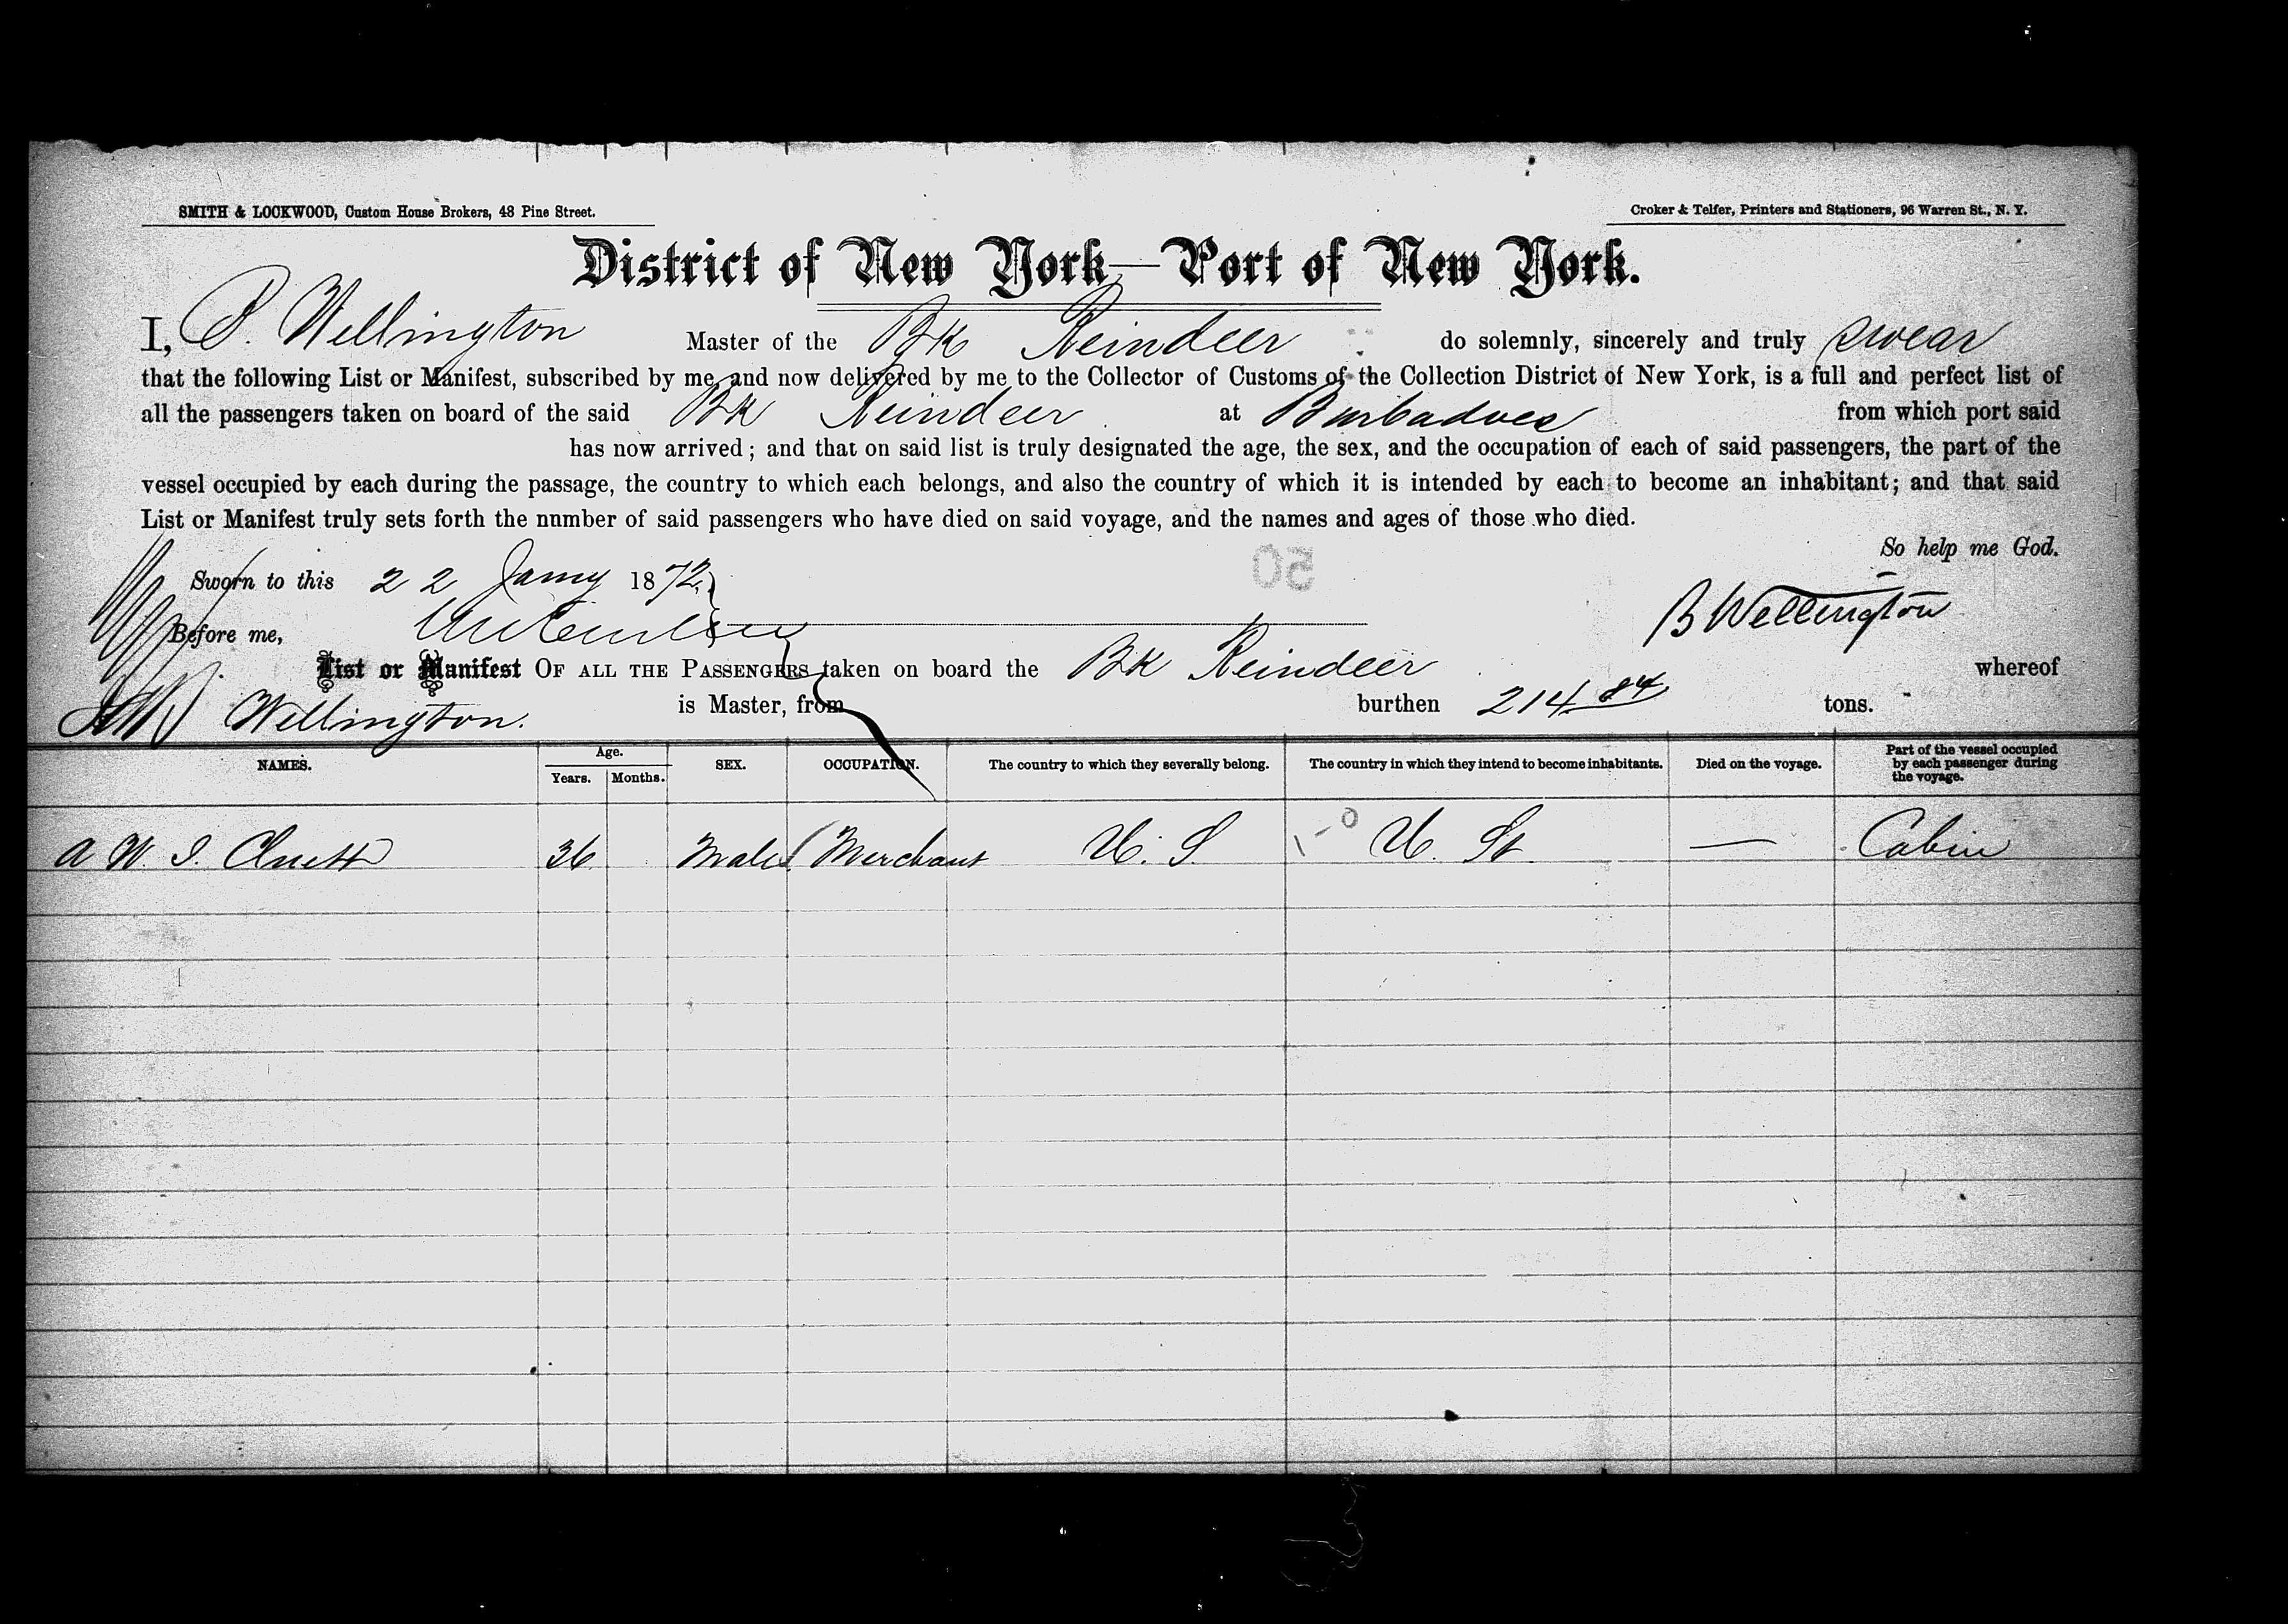 SMITH & LOCKWOOD, Custom House Brokers, 48 Pine Street.
Croker & Telfer, Printers and Stationers, 96 Warren St., N. Y.
District of New York—Port of New York.
I, Wellington Master of the Bk Reindeer do solemnly, sincerely and truly swear
that the following List or Manifest, subscribed by me and now delivered by me to the Collector of Customs of the Collection District of New York, is a full and perfect list of
all the passengers taken on board of the said Bk Reindeer at Barbadoes from which port said
has now arrived; and that on said list is truly designated the age, the sex, and the occupation of each of said passengers, the part of the
vessel occupied by each during the passage, the country to which each belongs, and also the country of which it is intended by each to become an inhabitant; and that said
List or Manifest truly sets forth the nnmber of said passengers who have died on said voyage, and the names and ages of those who died.
So help me God.
50
Sworn to this 22 Jany 1872
B Wellington
Before me,
List or Manifest OF ALL THE PASSENGERS taken on board the Bk Reindeer whereof
Wellington. is Master, from burthen 214 84 tons.
NAMES. Age. Years. Months. SEX. OCCUPATION. The country to which they severally belong. The country in which they intend to become inhabitants. Died on the voyage. Part of the vessel occupied by each passenger during the voyage.
A W. I. 36 Male Merchant U. S. U. St. — Cabin